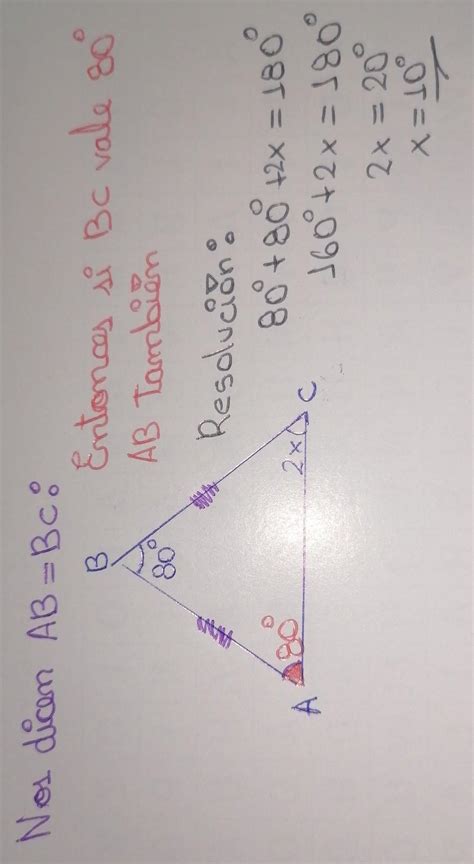 Nos dicen AB = BC:
Entonces si BC vale 80°
AB también
Resolución:
80° + 80° + 2x = 180°
160° + 2x = 180°
2x = 20°
x = 10°
B
80°
80°
2x
A
C